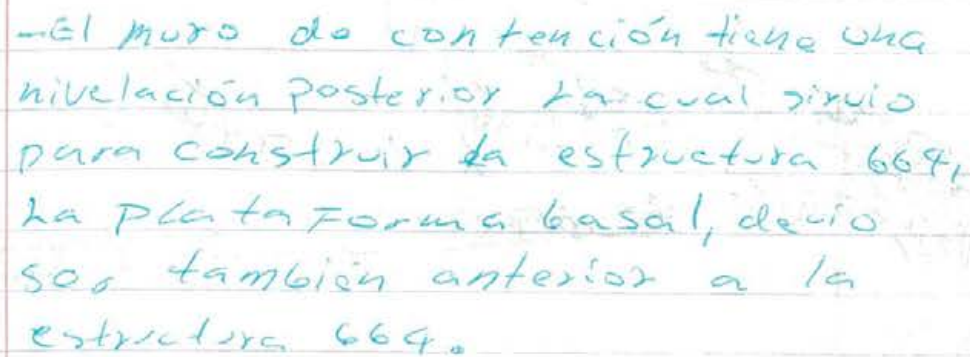 -El muro de contención tiene una
nivelación posterior La cual sirvio
para construir la estructura 664,
La plataforma basal, devio
ser también anterior a la
estructura 664.